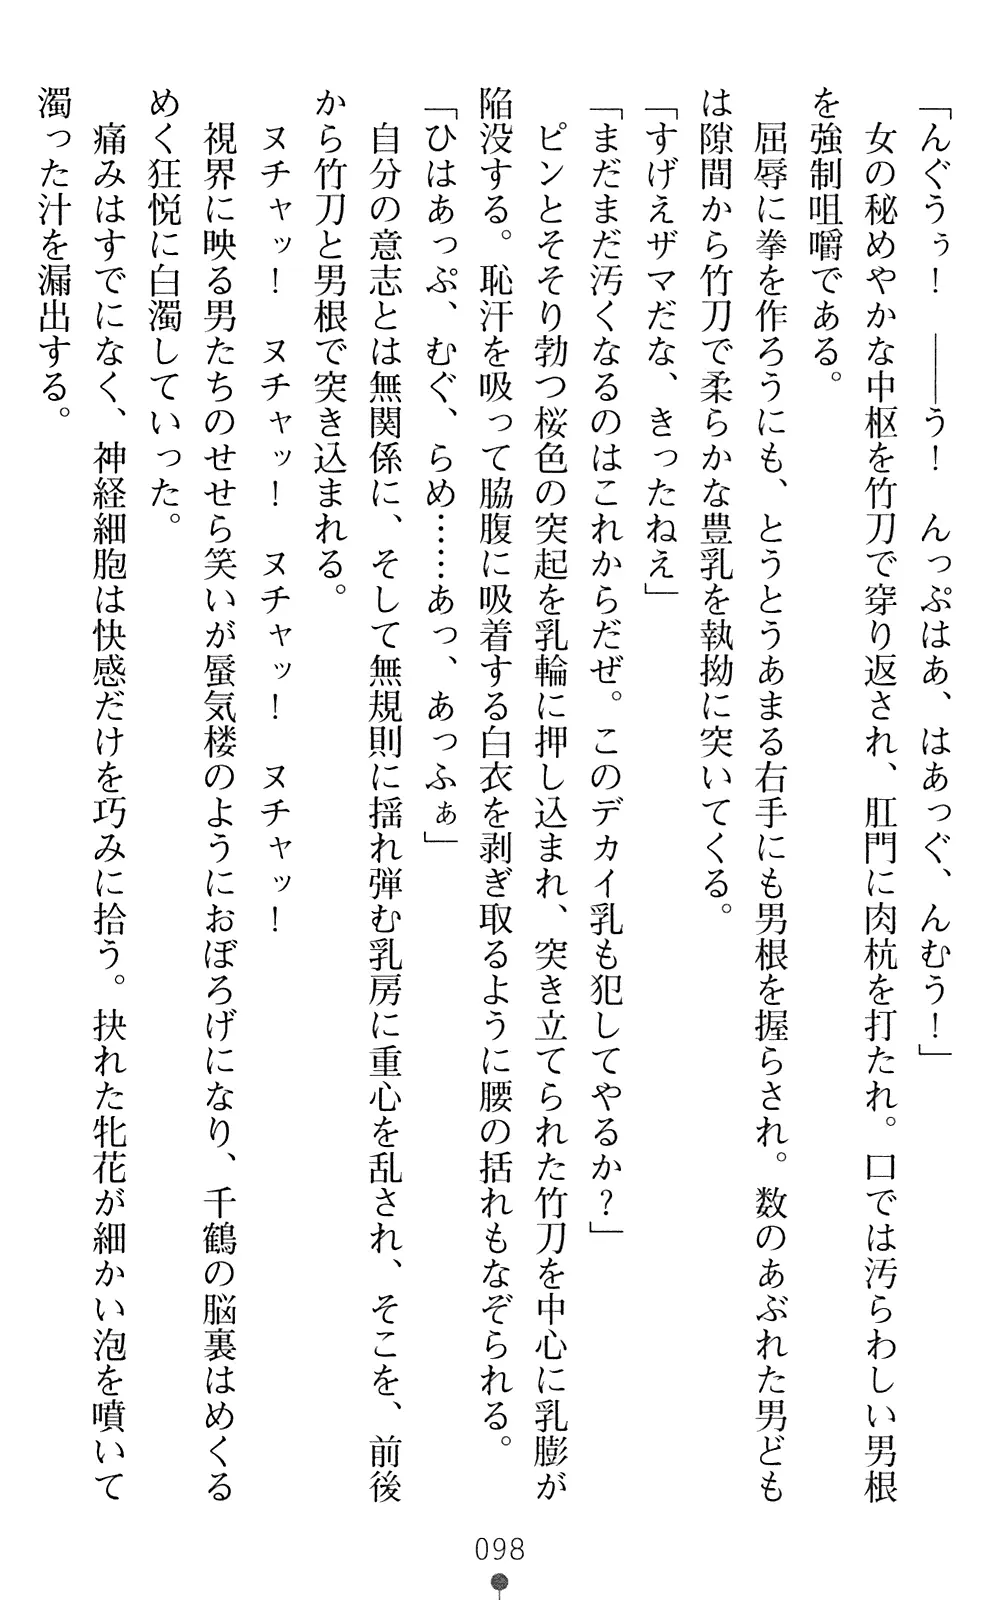 「んぐうぅ！　――う！　んっぷはあ、はあっぐ、んむう！」
　女の秘めやかな中枢を竹刀で穿り返され、肛門に肉杭を打たれ。口では汚らわしい男根
を強制咀嚼である。
　屈辱に拳を作ろうにも、とうとうあまる右手にも男根を握らされ。数のあぶれた男ども
は隙間から竹刀で柔らかな豊乳を執拗に突いてくる。
「すげえザマだな、きったねえ」
「まだまだ汚くなるのはこれからだぜ。このデカイ乳も犯してやるか？」
　ピンとそそり勃つ桜色の突起を乳輪に押し込まれ、突き立てられた竹刀を中心に乳膨が
陥没する。恥汗を吸って脇腹に吸着する白衣を剥ぎ取るように腰の括れもなぞられる。
「ひはあっぷ、むぐ、らめ……あっ、あっふぁ」
　自分の意志とは無関係に、そして無規則に揺れ弾む乳房に重心を乱され、そこを、前後
から竹刀と男根で突き込まれる。
　ヌチャッ！　ヌチャッ！　ヌチャッ！　ヌチャッ！
　視界に映る男たちのせせら笑いが蜃気楼のようにおぼろげになり、千鶴の脳裏はめくる
めく狂悦に白濁していった。
　痛みはすでになく、神経細胞は快感だけを巧みに拾う。抉れた牝花が細かい泡を噴いて
濁った汁を漏出する。
098